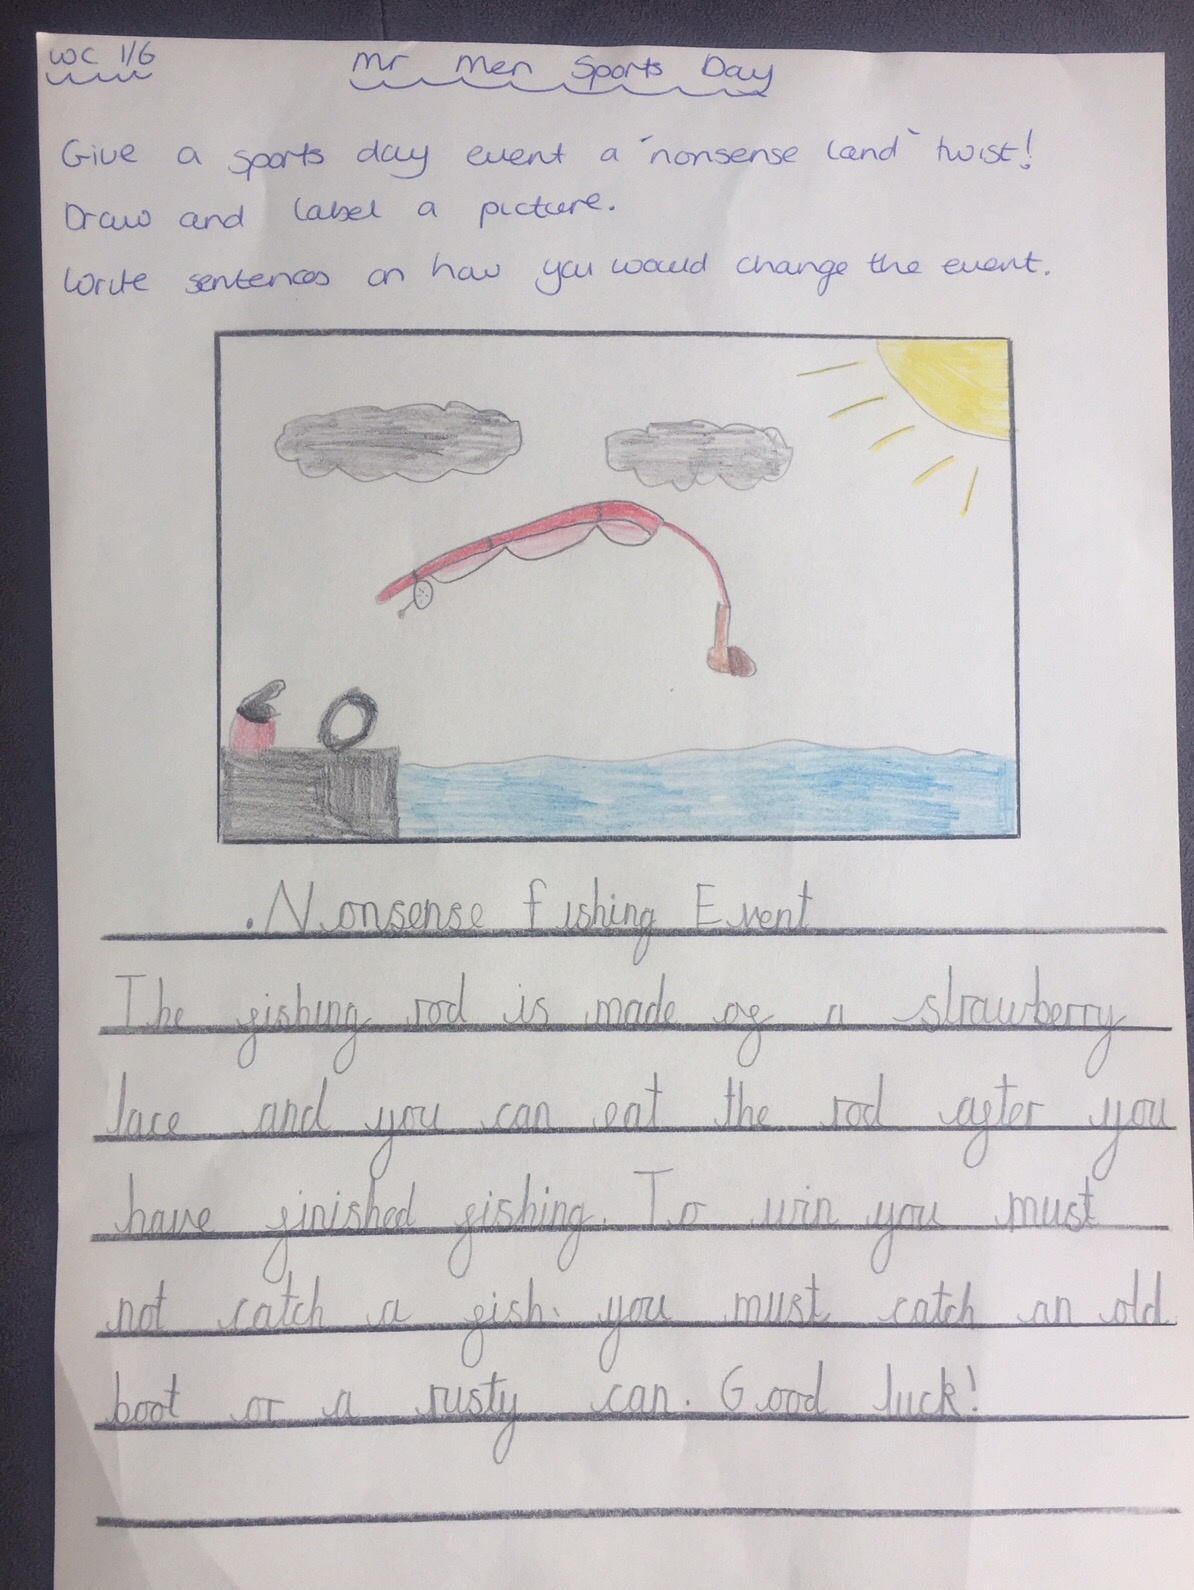 WC 1/6
Mr Men Sports Day
Give a sports day event a "nonsense land" twist!
Draw and label a picture.
Write sentences on how you would change the event.
.Nonsense fishing Event
The fishing rod is made of a strawberry
lace and you can eat the rod after you
have finished fishing. To win you must
not catch a fish. you must catch an old
boot or a rusty can. Good luck!